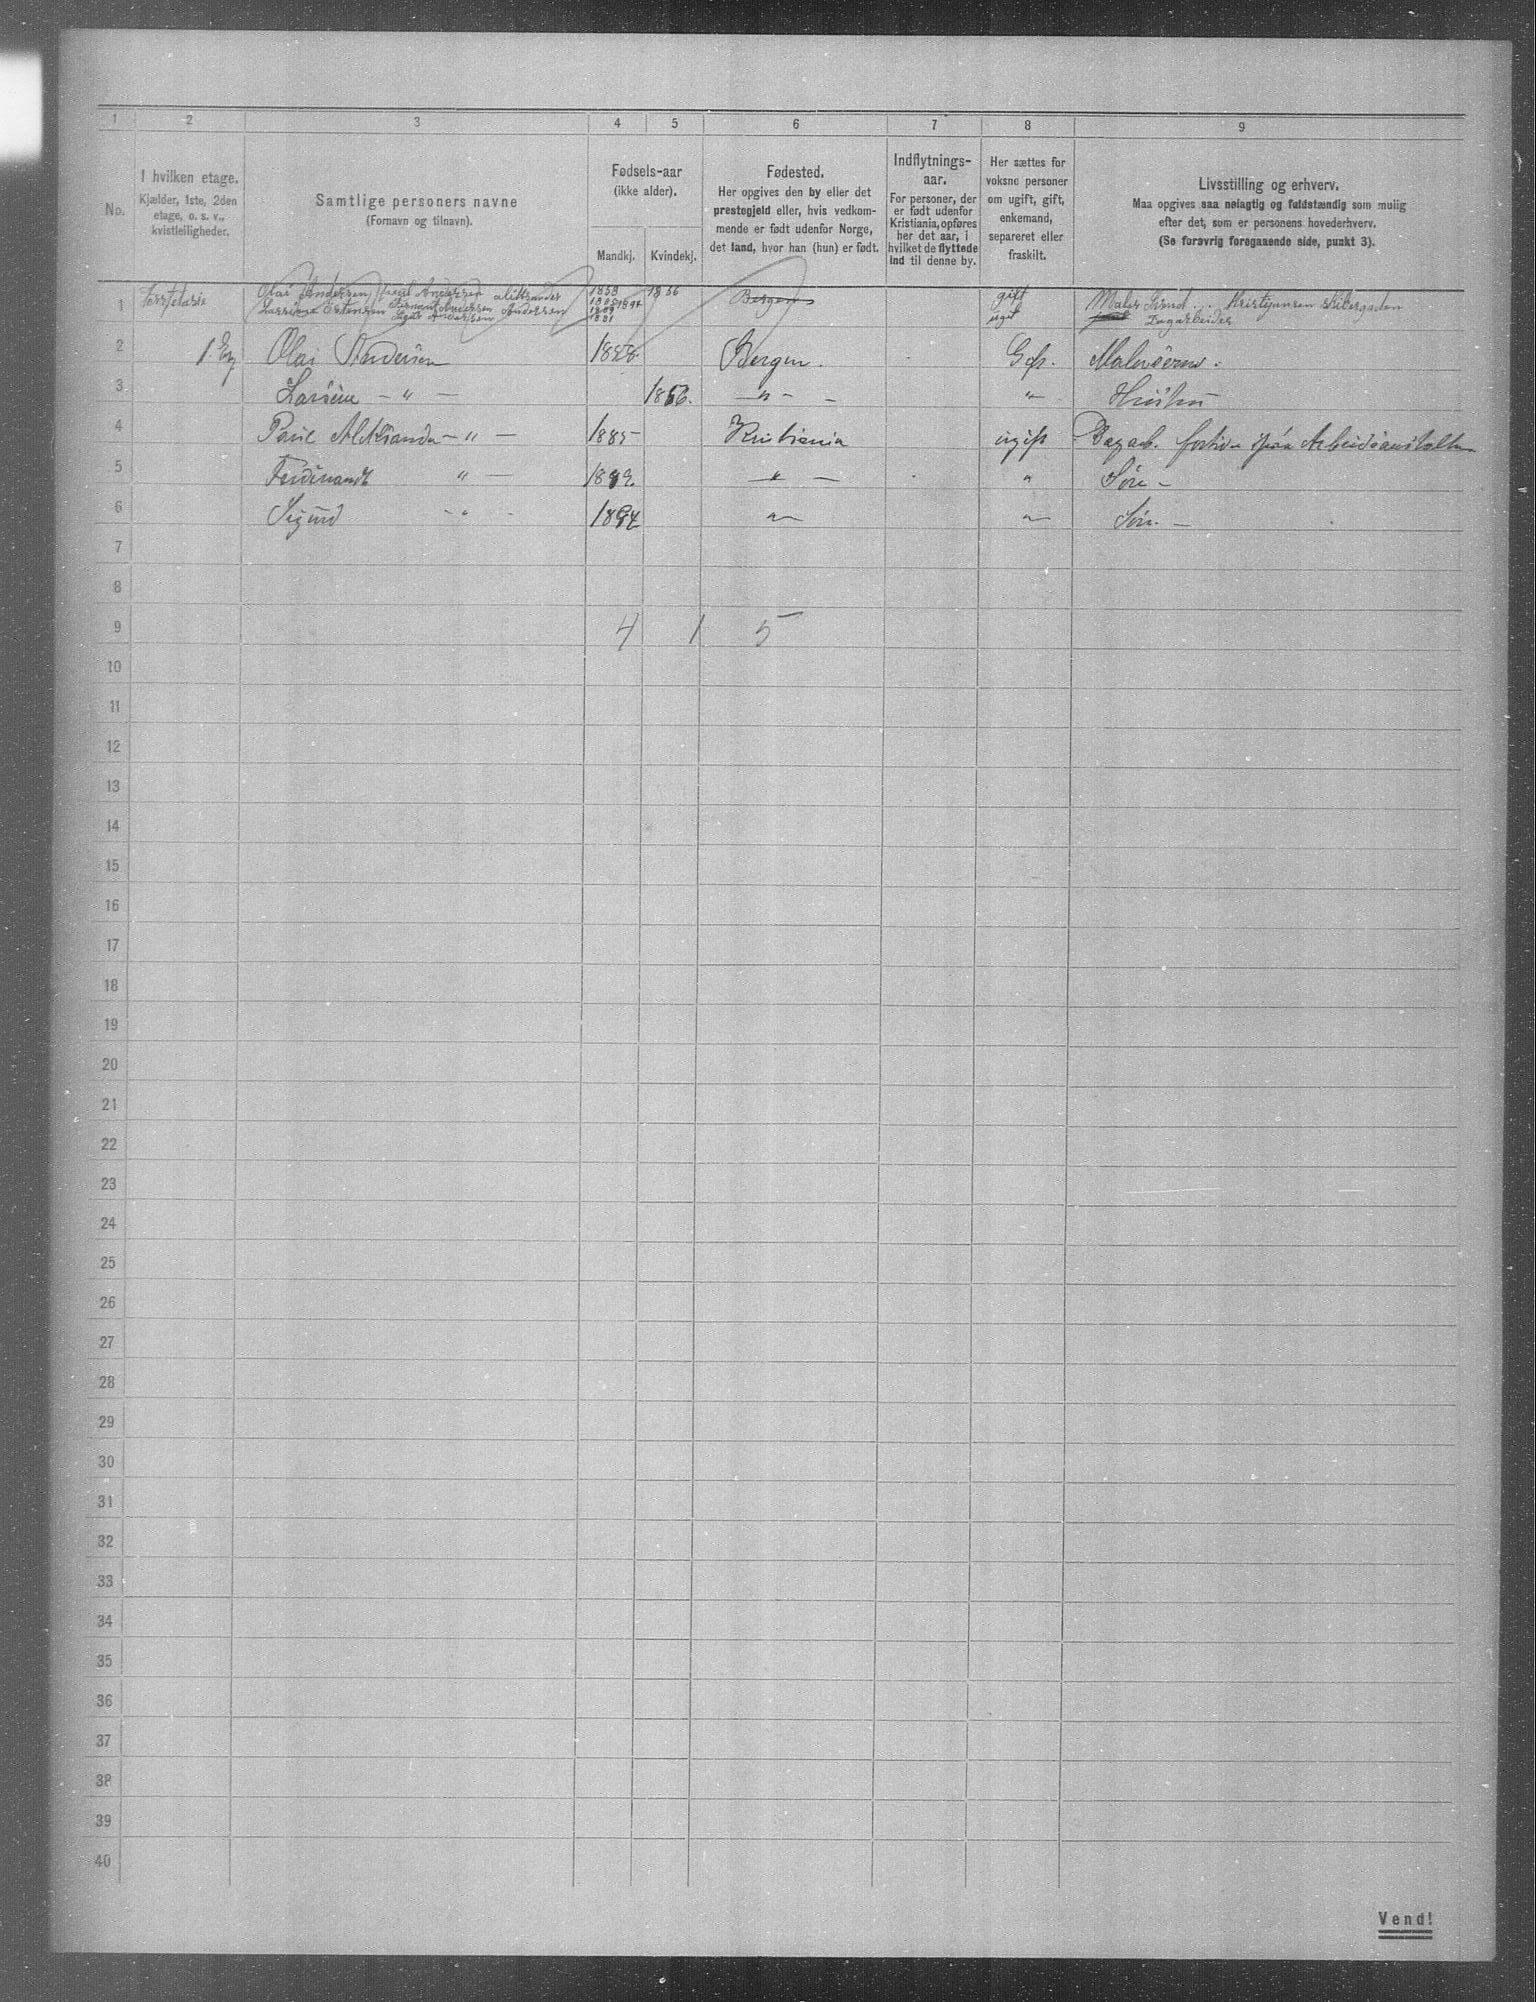 1 2 3 4 5 6 7 8 9
No.
I hvilken etage.
Kjælder, 1ste, 2den
etage, o. s. v.,
kvistleiligheder.
Samtlige personers navne
(Fornavn og tilnavn).
Fødsels-aar
(ikke alder).
Mandkj. Kvindekj.
Fødested.
Her opgives den by eller det
prestegjeld eller, hvis vedkom-
mende er født udenfor Norge,
det land, hvor han (hun) er født.
Indflytnings-
aar.
For personer, der
er født udenfor
Kristiania, opføres
her det aar, i
hvilket de flyttede
ind til denne by.
Her sættes for
voksne personer
om ugift, gift,
enkemand,
separeret eller
fraskilt.
Livsstilling og erhverv.
Maa opgives saa nøiagtig og fuldstændig som mulig
efter det, som er personens hovederhverv.
(Se forøvrig foregaaende side, punkt 3).
1 Olai Andersen Paul Andersen 1858 1856 Bergen gift Maler Kristijansen
Andersen 1894 Dagarbeider
2 1. Olai Andersen 1858 Bergen. Gift. Malersvend.
3 Larsine — " — 1856. — " — — " — Hustru
4 Paul Aleksander — " — 1885 Kristiania ugift Dagarb. for tiden paa Arbeidsanstalten
5 Ferdinandt " — 1889. — " — " Søn —
6 Sigurd — " — 1894 — " — — " — Søn. —
7
8
9 4 1 5
10
11
12
13
14
15
16
17
18
19
20
21
22
23
24
25
26
27
28
29
30
31
32
33
34
35
36
37
38
39
40
Vend!